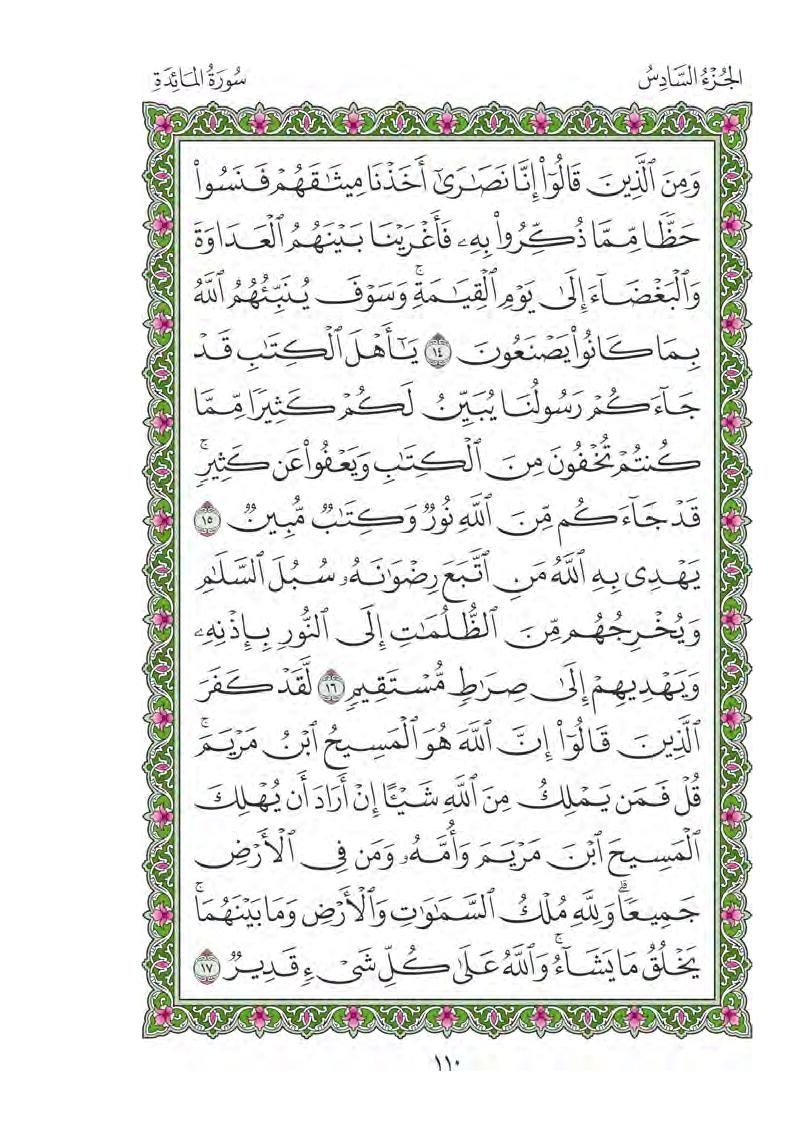 الجُزْءُ السَّادِسُ سُورَةُ المَائِدَةِ
وَمِنَ ٱلَّذِينَ قَالُوٓا۟ إِنَّا نَصَـٰرَىٰٓ أَخَذْنَا مِيثَـٰقَهُمْ فَنَسُوا۟
حَظًّا مِّمَّا ذُكِّرُوا۟ بِهِۦ فَأَغْرَيْنَا بَيْنَهُمُ ٱلْعَدَاوَةَ
وَٱلْبَغْضَآءَ إِلَىٰ يَوْمِ ٱلْقِيَـٰمَةِ ۚ وَسَوْفَ يُنَبِّئُهُمُ ٱللَّهُ
بِمَا كَانُوا۟ يَصْنَعُونَ ١٤ يَـٰٓأَهْلَ ٱلْكِتَـٰبِ قَدْ
جَآءَكُمْ رَسُولُنَا يُبَيِّنُ لَكُمْ كَثِيرًا مِّمَّا
كُنتُمْ تُخْفُونَ مِنَ ٱلْكِتَـٰبِ وَيَعْفُوا۟ عَن كَثِيرٍ ۚ
قَدْ جَآءَكُم مِّنَ ٱللَّهِ نُورٌ وَكِتَـٰبٌ مُّبِينٌ ١٥
يَهْدِى بِهِ ٱللَّهُ مَنِ ٱتَّبَعَ رِضْوَٰنَهُۥ سُبُلَ ٱلسَّلَـٰمِ
وَيُخْرِجُهُم مِّنَ ٱلظُّلُمَـٰتِ إِلَى ٱلنُّورِ بِإِذْنِهِۦ
وَيَهْدِيهِمْ إِلَىٰ صِرَٰطٍ مُّسْتَقِيمٍ ١٦ لَّقَدْ كَفَرَ
ٱلَّذِينَ قَالُوٓا۟ إِنَّ ٱللَّهَ هُوَ ٱلْمَسِيحُ ٱبْنُ مَرْيَمَ ۚ
قُلْ فَمَن يَمْلِكُ مِنَ ٱللَّهِ شَيْـًٔا إِنْ أَرَادَ أَن يُهْلِكَ
ٱلْمَسِيحَ ٱبْنَ مَرْيَمَ وَأُمَّهُۥ وَمَن فِى ٱلْأَرْضِ
جَمِيعًا ۗ وَلِلَّهِ مُلْكُ ٱلسَّمَـٰوَٰتِ وَٱلْأَرْضِ وَمَا بَيْنَهُمَا ۚ
يَخْلُقُ مَا يَشَآءُ ۚ وَٱللَّهُ عَلَىٰ كُلِّ شَىْءٍ قَدِيرٌ ١٧
١١٠